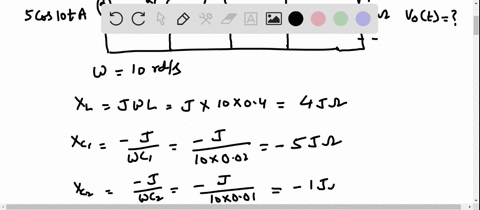 5 Cos 10t A Ω V₀(t) = ?
ω = 10 rd/s
X_L = JωL = J × 10 × 0.4 = 4JΩ
X_C₁ = -J/ωC₁ = -J/(10×0.02) = -5JΩ
X_C₂ = -J/ωC₂ = -J/(10×0.01) = -1J